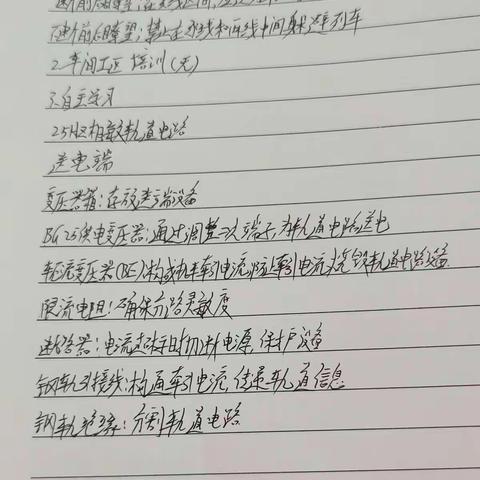 断前后瞭望;在
断前后瞭望;禁止在邻线和两线中间躲避列车
2.车间工区培训(无)
3.自主学习
25Hz相敏轨道电路
送电端
变压器箱:存放送端设备
BG25供电变压器:通过调整二次端子,为轨道电路送电
轭流变压器(BE)构成牵引电流,防止牵引电流烧毁轨道电路设备
限流电阻:确保分路灵敏度
断路器:电流超标时切断电源,保护设备
钢轨引接线:构通牵引电流,传递轨道信息
钢轨绝缘:分割轨道电路